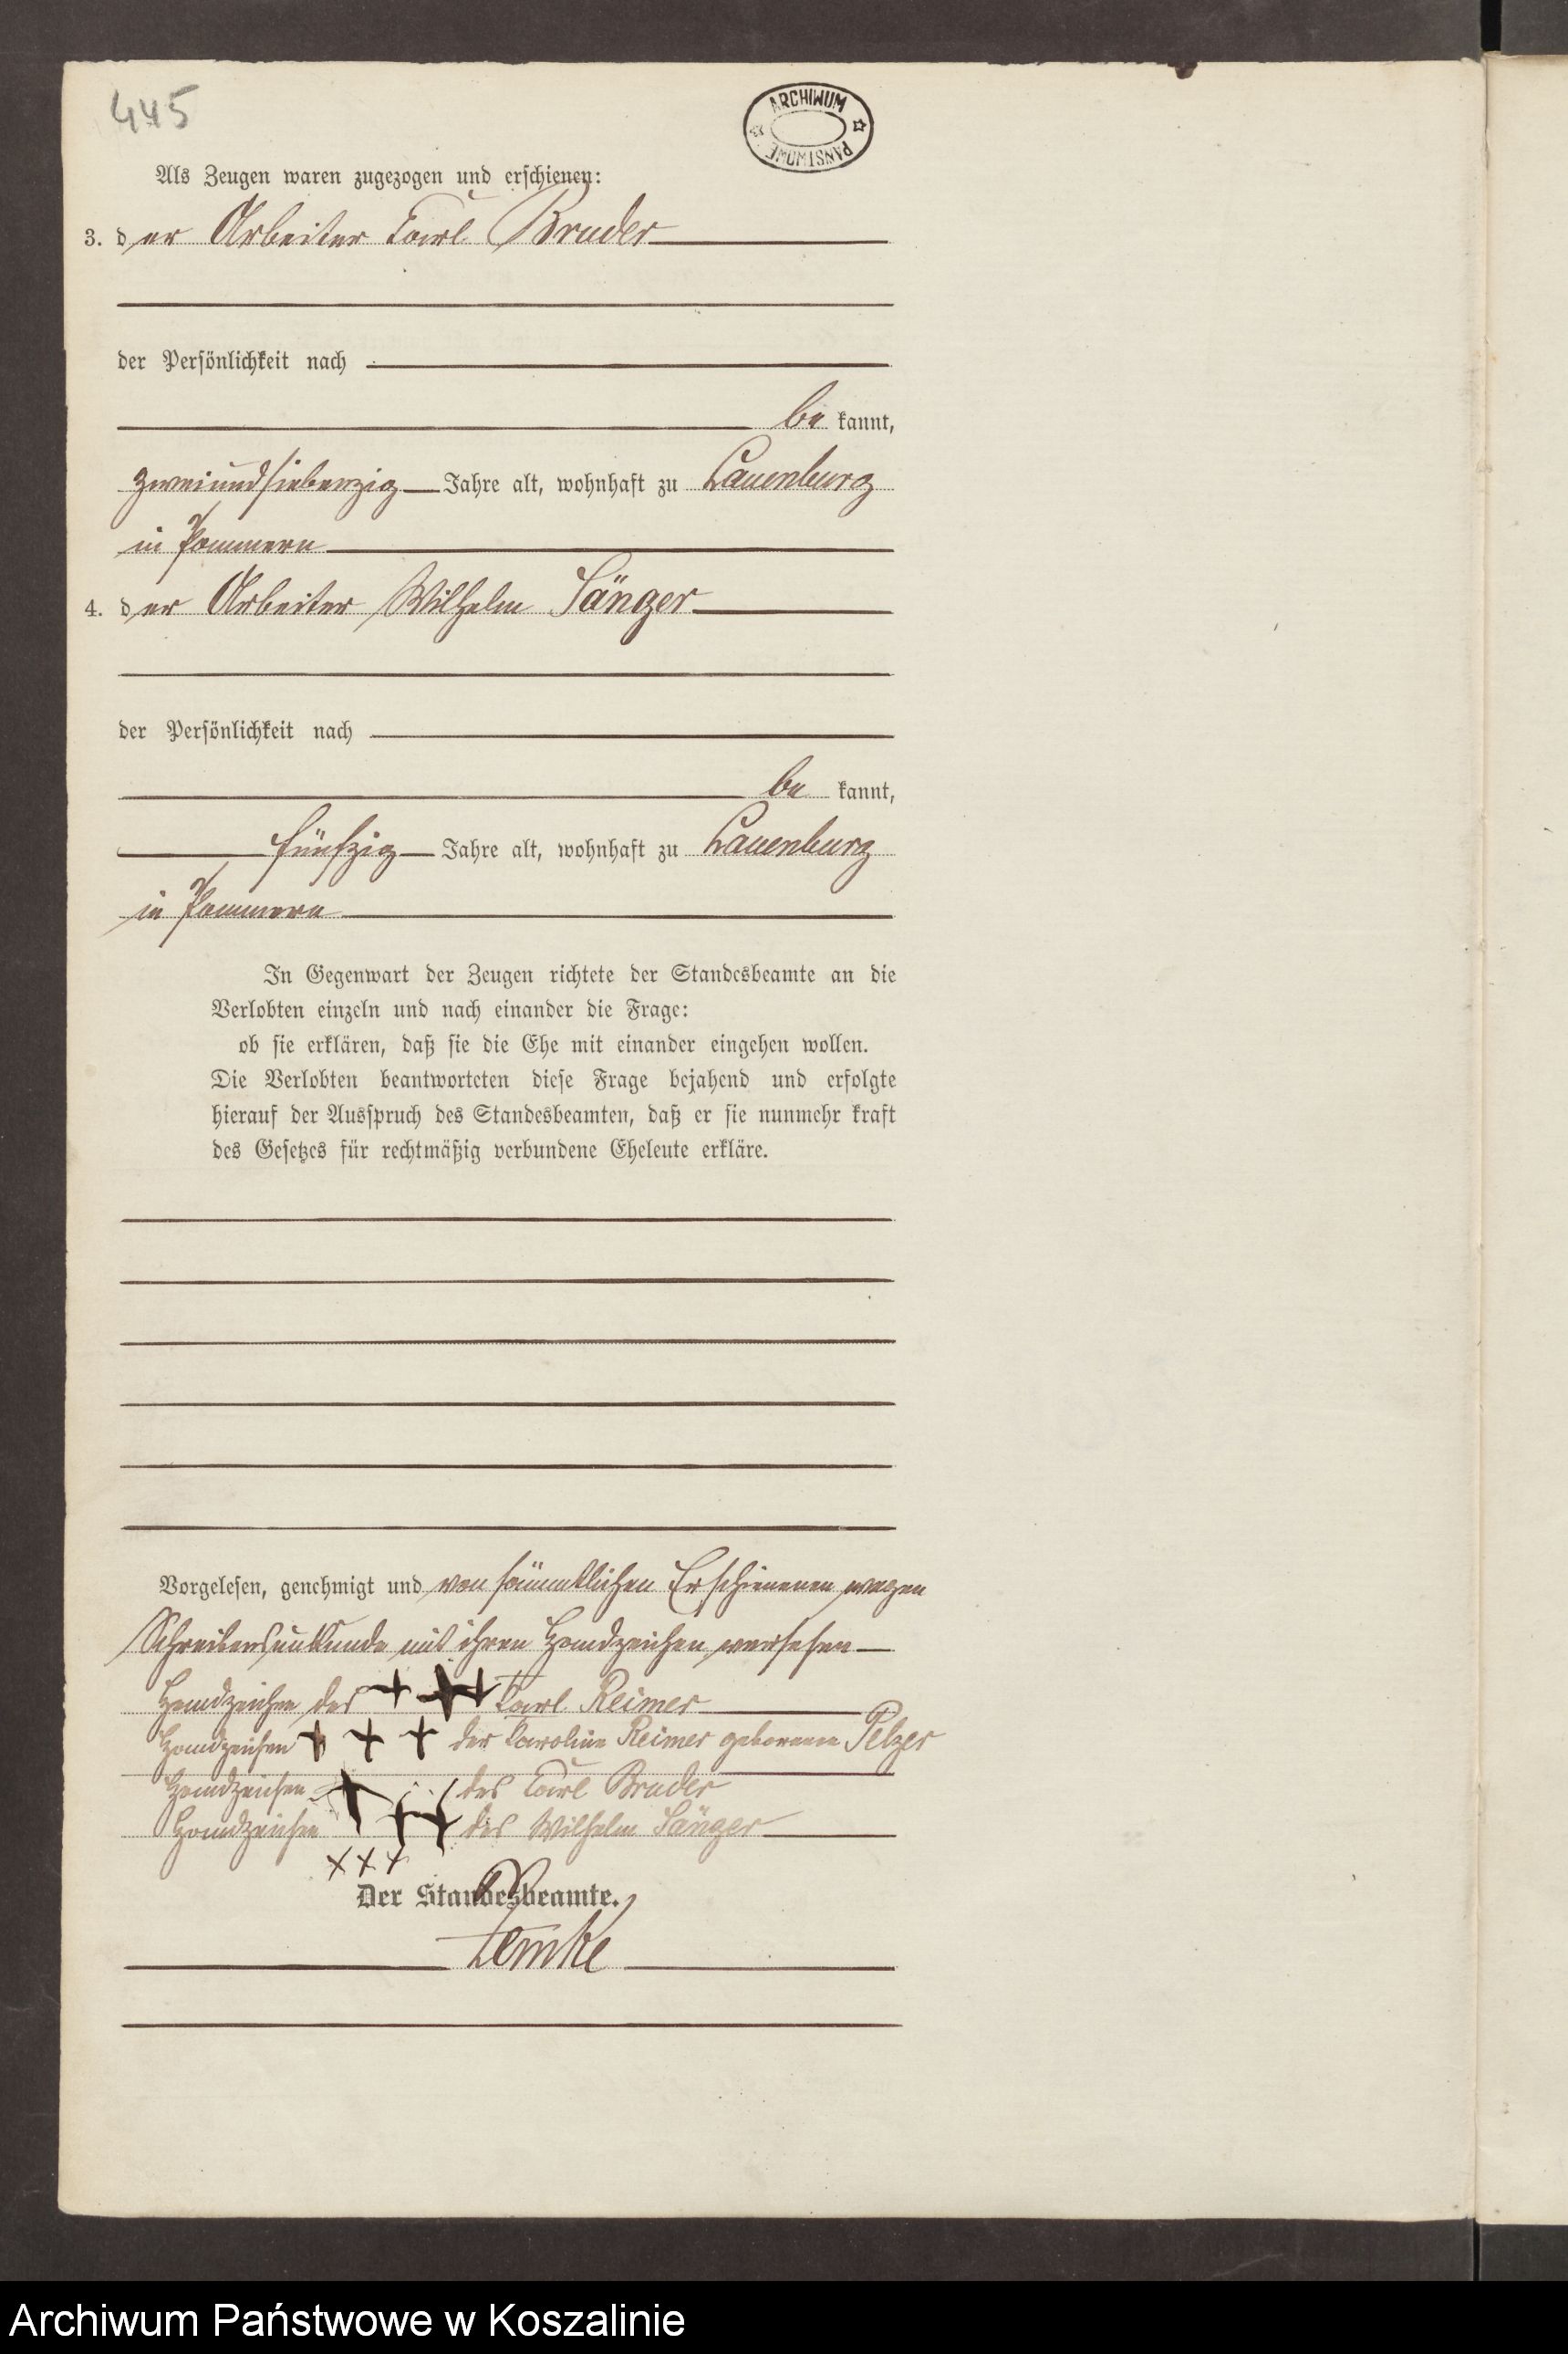 445
ARCHIWUM PAŃSTWOWE
Als Zeugen waren zugezogen und erschienen:
3. der Arbeiter Carl Bruder
der Persönlichkeit nach
be kannt,
zweiundsiebenzig Jahre alt, wohnhaft zu Lauenburg
in Pommern
4. der Arbeiter Wilhelm Sänger
der Persönlichkeit nach
be kannt,
fünfzig Jahre alt, wohnhaft zu Lauenburg
in Pommern
In Gegenwart der Zeugen richtete der Standesbeamte an die
Verlobten einzeln und nach einander die Frage:
ob sie erklären, daß sie die Ehe mit einander eingehen wollen.
Die Verlobten beantworteten diese Frage bejahend und erfolgte
hierauf der Ausspruch des Standesbeamten, daß er sie nunmehr kraft
des Gesetzes für rechtmäßig verbundene Eheleute erkläre.
Vorgelesen, genehmigt und von sämmtlichen Erschienenen wegen
Schreibensunkunde mit ihren Handzeichen versehen
Handzeichen des +++ Carl Reimer
Handzeichen +++ der Caroline Reimer geborenen Pelzer
Handzeichen des Carl Bruder
Handzeichen des Wilhelm Sänger
+++
Der Standesbeamte.
Lemke
Archiwum Państwowe w Koszalinie